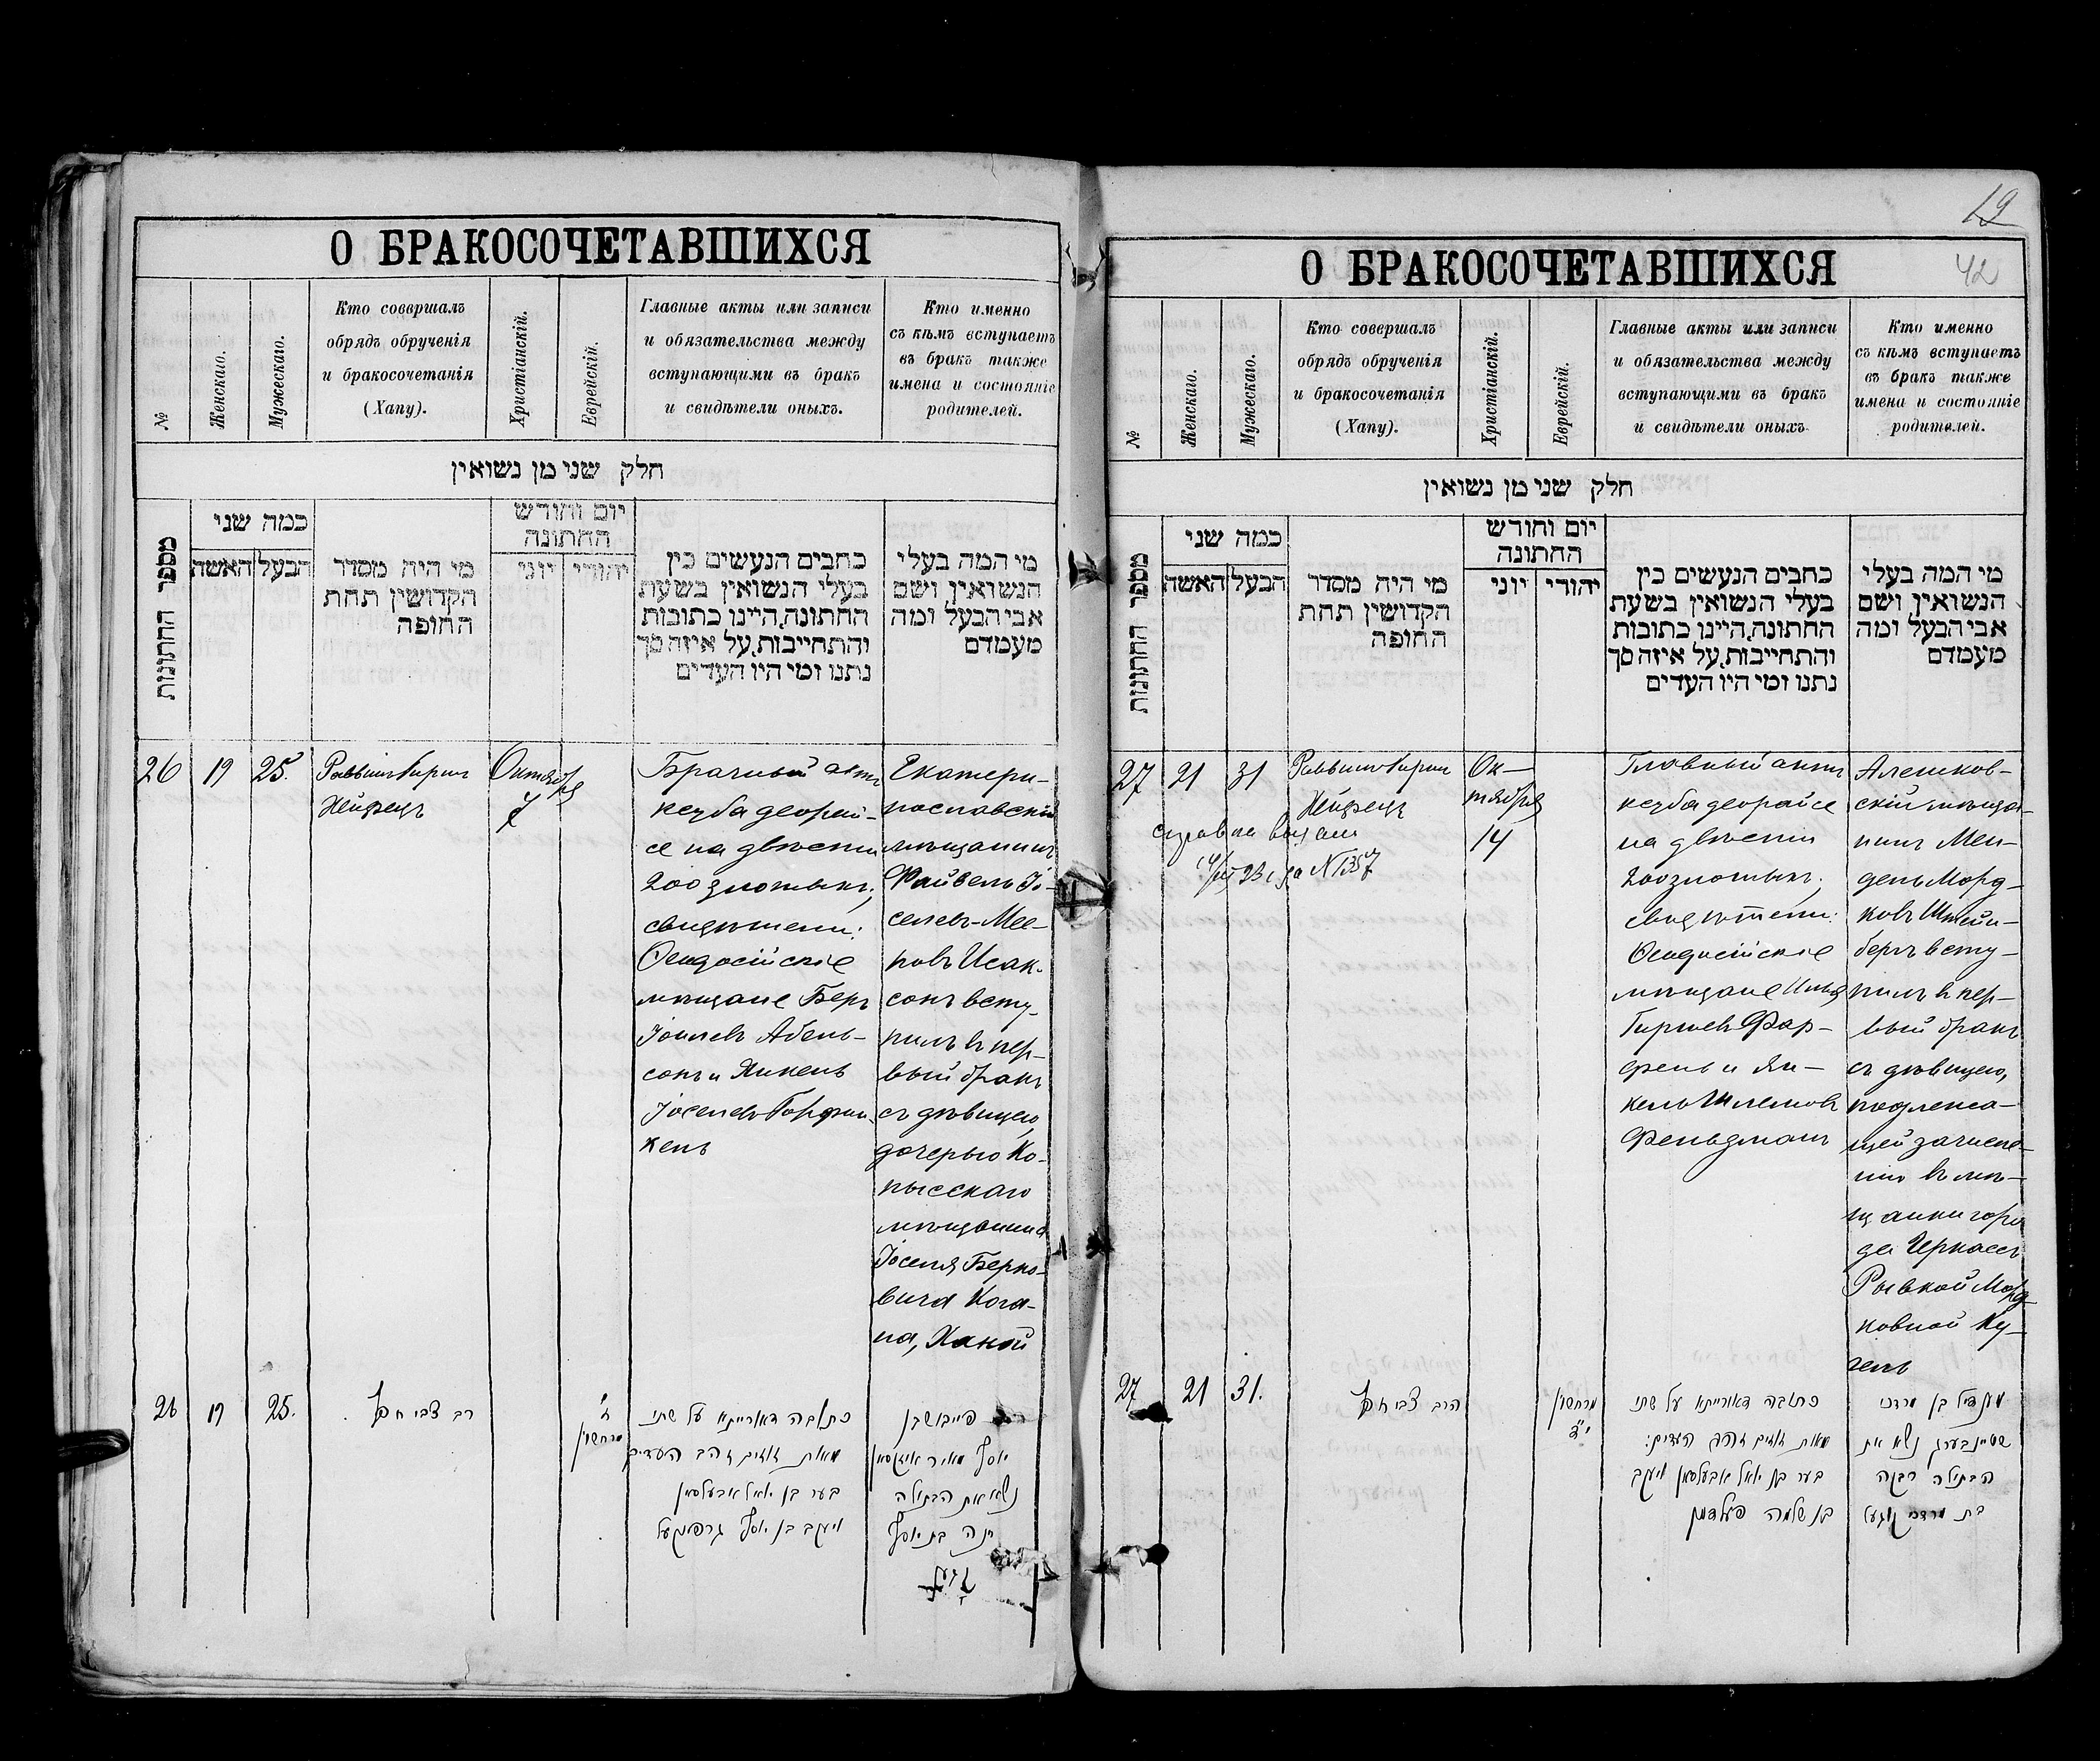 О БРАКОСОЧЕТАВШИХСЯ
№
Женскаго.
Мужескаго.
Кто совершалъ
обрядъ обрученія
и бракосочетанія
(Хапу).
Христіанскій.
Еврейскій.
Главные акты или записи
и обязательства между
вступающими въ бракъ
и свидѣтели оныхъ.
Кто именно
съ кѣмъ вступаетъ
въ бракъ также
имена и состояніе
родителей.
חלק שני מן נשואין
מספר החתונות
כמה שני
האשה
הבעל
מי היה מסדר
הקדושין תחת
החופה
יום וחודש
החתונה
יוני
יהודי
כתבים הנעשים בין
בעלי הנשואין בשעת
החתונה, היינו כתובות
והתחייבות, על איזה סך
נתנו ומי היו העדים
מי המה בעלי
הנשואין ושם
אבי הבעל ומה
מעמדם
26
19
25.
Раввинъ Гиршъ
Хейфецъ
Октября
7
Брачный актъ
кетуба деорай-
се на двѣсти
200 злотыхъ;
свидѣтели:
Ѳеодосійскіе
мѣщане Беръ
Іоилевъ Абель-
сонъ и Янкель
Іоселевъ Гарфин-
кель
Екатери-
нославскій
мѣщанинъ
Файвель Іо-
селевъ-Мее-
ровъ Исак-
сонъ всту-
пилъ въ пер-
вый бракъ
съ дѣвицею,
дочерью Ко-
пысскаго
мѣщанина
Іоселя Берко-
вича Кога-
на, Ханой
26
19
25.
רב צבי חפץ
ח'
מרחשון
כתובה דאורייתא על שתי
מאות זוזים זהב העדים
בער בן יואל אבעלסאן
ויעקב בן יוסף גרפינקעל
פייבוש בן
יוסף מאיר איזקסאן
נשא את הבתולה
חנה בת יוסף
О БРАКОСОЧЕТАВШИХСЯ
19
42
№
Женскаго.
Мужескаго.
Кто совершалъ
обрядъ обрученія
и бракосочетанія
(Хапу).
Христіанскій.
Еврейскій.
Главные акты или записи
и обязательства между
вступающими въ бракъ
и свидѣтели оныхъ.
Кто именно
съ кѣмъ вступаетъ
въ бракъ также
имена и состояніе
родителей.
חלק שני מן נשואין
מספר החתונות
כמה שני
האשה
הבעל
מי היה מסדר
הקדושין תחת
החופה
יום וחודש
החתונה
יוני
יהודי
כתבים הנעשים בין
בעלי הנשואין בשעת
החתונה, היינו כתובות
והתחייבות, על איזה סך
נתנו ומי היו העדים
מי המה בעלי
הנשואין ושם
אבי הבעל ומה
מעמדם
27
21
31
Раввинъ Гиршъ
Хейфецъ
справка выдана
за № 1357
Ок-
тября
14
Главный актъ
кетуба деорайсе
на двѣсти
200 злотыхъ;
свидѣтели:
Ѳеодосійскіе
мѣщане
Гиршевъ Фар-
фель и Ян-
кель Шлемовъ
Фельдманъ
Алешков-
скій мѣща-
нинъ Мен-
дель Морд-
ковъ Штейн-
бергъ всту-
пилъ въ пер-
вый бракъ
съ дѣвицею,
подлежа-
щей зачисле-
нію въ мѣ-
щанки горо-
да Черкассъ
Рывкой Морд-
ковной Ку-
гель
27
21
31.
הרב צבי חפץ
מרחשון
כתובה דאורייתא על שתי
מאות זוזים זהב העדים:
בער בן יואל אבעלסאן ויעקב
בן שלמה פעלדמן
מענדיל בן מרדכי
שטיינבערג נשא את
הבתולה רבקה
בת מרדכי קוגעל